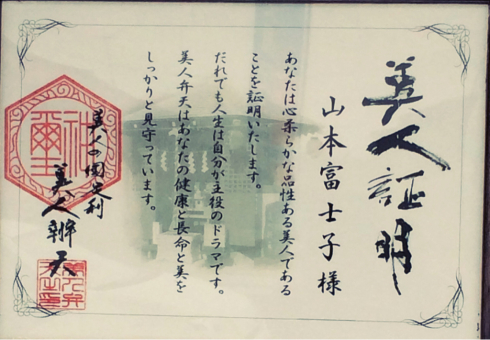 美人証明
山本富士子様
あなたは心柔らかな品性ある美人である
ことを証明いたします。
だれでも人生は自分が主役のドラマです。
美人弁天はあなたの健康と長命と美を
しっかりと見守っています。
美人の国足利
美人辨天